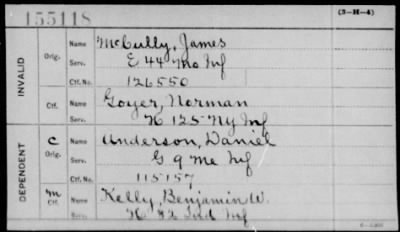 155118
(3-H-4)
INVALID
Orig. Name McCully, James
Serv. E 44 Mo Inf
Ctf. No. 126550
Ctf. Name Goyer, Norman
Serv. K 125 Ny Inf
DEPENDENT
C Orig. Name Anderson, Daniel
Serv. G 9 Me Inf
Ctf. No. 115157
m Ctf. Name Kelly, Benjamin W.
Serv. 82 Ind Inf